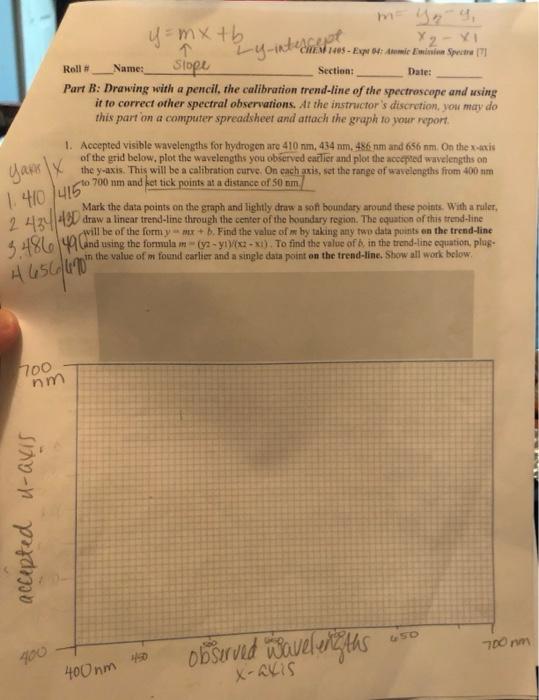 y = mx + b
↑
slope
y-intercept
m = y₂ - y₁
x₂ - x₁
CHEM 1405 - Expt 04: Atomic Emission Spectra [7]
Roll # ____ Name: ____ Section: ____ Date: ____
Part B: Drawing with a pencil, the calibration trend-line of the spectroscope and using
it to correct other spectral observations. At the instructor's discretion, you may do
this part on a computer spreadsheet and attach the graph to your report.
1. Accepted visible wavelengths for hydrogen are 410 nm, 434 nm, 486 nm and 656 nm. On the x-axis
of the grid below, plot the wavelengths you observed earlier and plot the accepted wavelengths on
the y-axis. This will be a calibration curve. On each axis, set the range of wavelengths from 400 nm
to 700 nm and set tick points at a distance of 50 nm.
Mark the data points on the graph and lightly draw a soft boundary around these points. With a ruler,
draw a linear trend-line through the center of the boundary region. The equation of this trend-line
will be of the form y = mx + b. Find the value of m by taking any two data points on the trend-line
and using the formula m = (y2 - y1)/(x2 - x1). To find the value of b, in the trend-line equation, plug-
in the value of m found earlier and a single data point on the trend-line. Show all work below.
x
1. 410 415
2 434 430
3. 486 490
4 656 690
700
nm
accepted
400
400nm
450
650
700 nm
observed wavelengths
x-axis